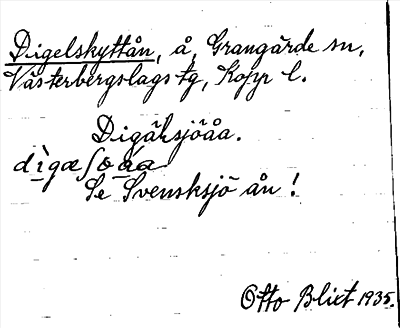 Digelskyttån, å, Grangärde sn,
Västerbergslags tg, Kopp l.
Digälsjöåa.
dìgæʃøaa
Se Svensksjö ån!
Otto Blixt 1935.